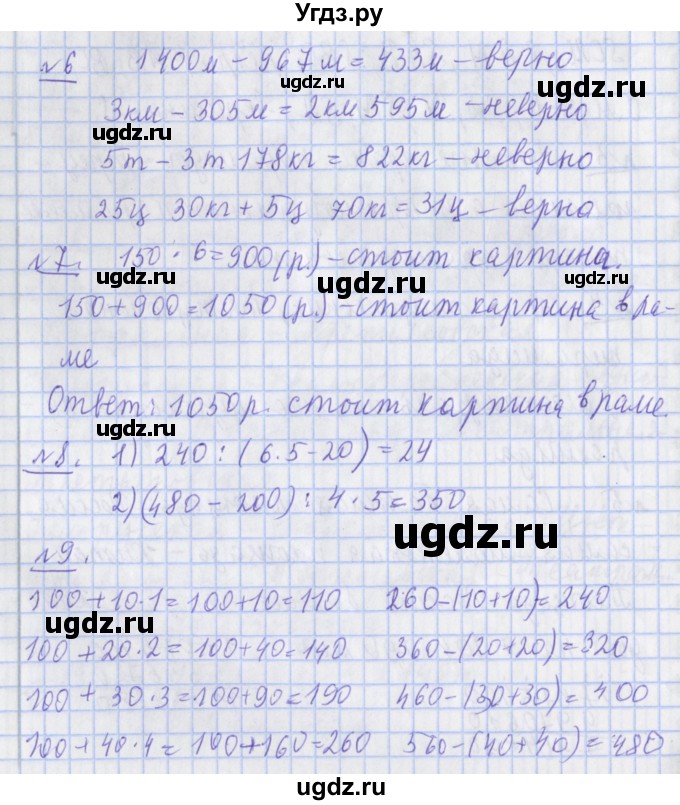 Угдз.ру
№6 1400м - 967м = 433м - верно
ugdz.ru
ugdz.ru
3км - 305м = 2км 595м - неверно
ugdz.ru
5т - 3т 178кг = 822кг - неверно
ugdz.ru
25ц 30кг + 5ц 70кг = 31ц - верно
ugdz.ru
№7. 150 · 6 = 900 (р.) - стоит картина.
ugdz.ru
ugdz.ru
ugdz.ru
150 + 900 = 1050 (р.) - стоит картина в ра-
ме
ugdz.ru
Ответ: 1050р. стоит картина в раме.
ugdz.ru
№8. 1) 240 : (6·5-20) = 24
ugdz.ru
2) (480 - 200) : 4 · 5 = 350
ugdz.ru
№9.
100 + 10·1 = 100+10 = 110 260-(10+10) = 240
ugdz.ru
100 + 20·2 = 100+40 = 140 360-(20+20) = 320
ugdz.ru
100 + 30·3 = 100+90 = 190 460-(30+30) = 400
ugdz.ru
100 + 40·4 = 100+160 = 260 560-(40+40) = 480
ugdz.ru